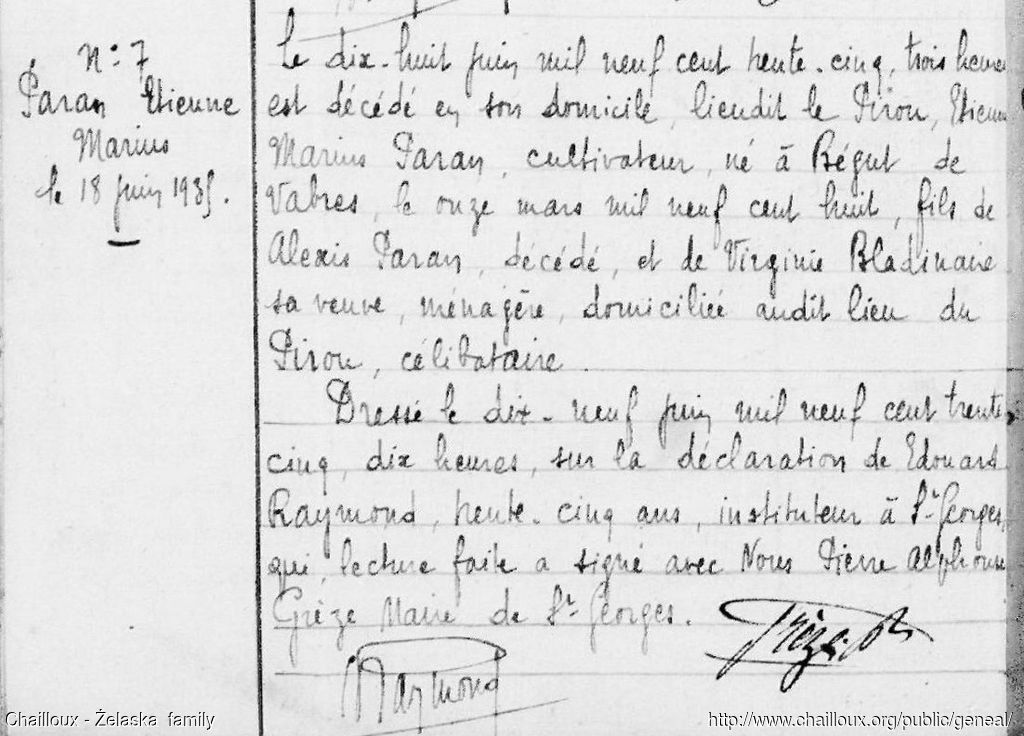 N° 7
Paran Etienne
Marius
le 18 juin 1935.
Le dix-huit juin mil neuf cent trente-cinq, trois heures
est décédé en son domicile, lieudit le Pirou, Etienne
Marius Paran, cultivateur, né à Bégut de
Vabres, le onze mars mil neuf cent huit, fils de
Alexis Paran, décédé, et de Virginie Bladinaire
sa veuve, ménagère, domiciliée audit lieu du
Pirou, célibataire.
Dressé le dix-neuf juin mil neuf cent trente
cinq, dix heures, sur la déclaration de Edouard
Raymond, trente-cinq ans, instituteur à St Georges,
qui, lecture faite a signé avec Nous Pierre Alphonse
Grèze Maire de St Georges.
Grèze
Raymond
Chailloux - Želaska family
http://www.chailloux.org/public/geneal/